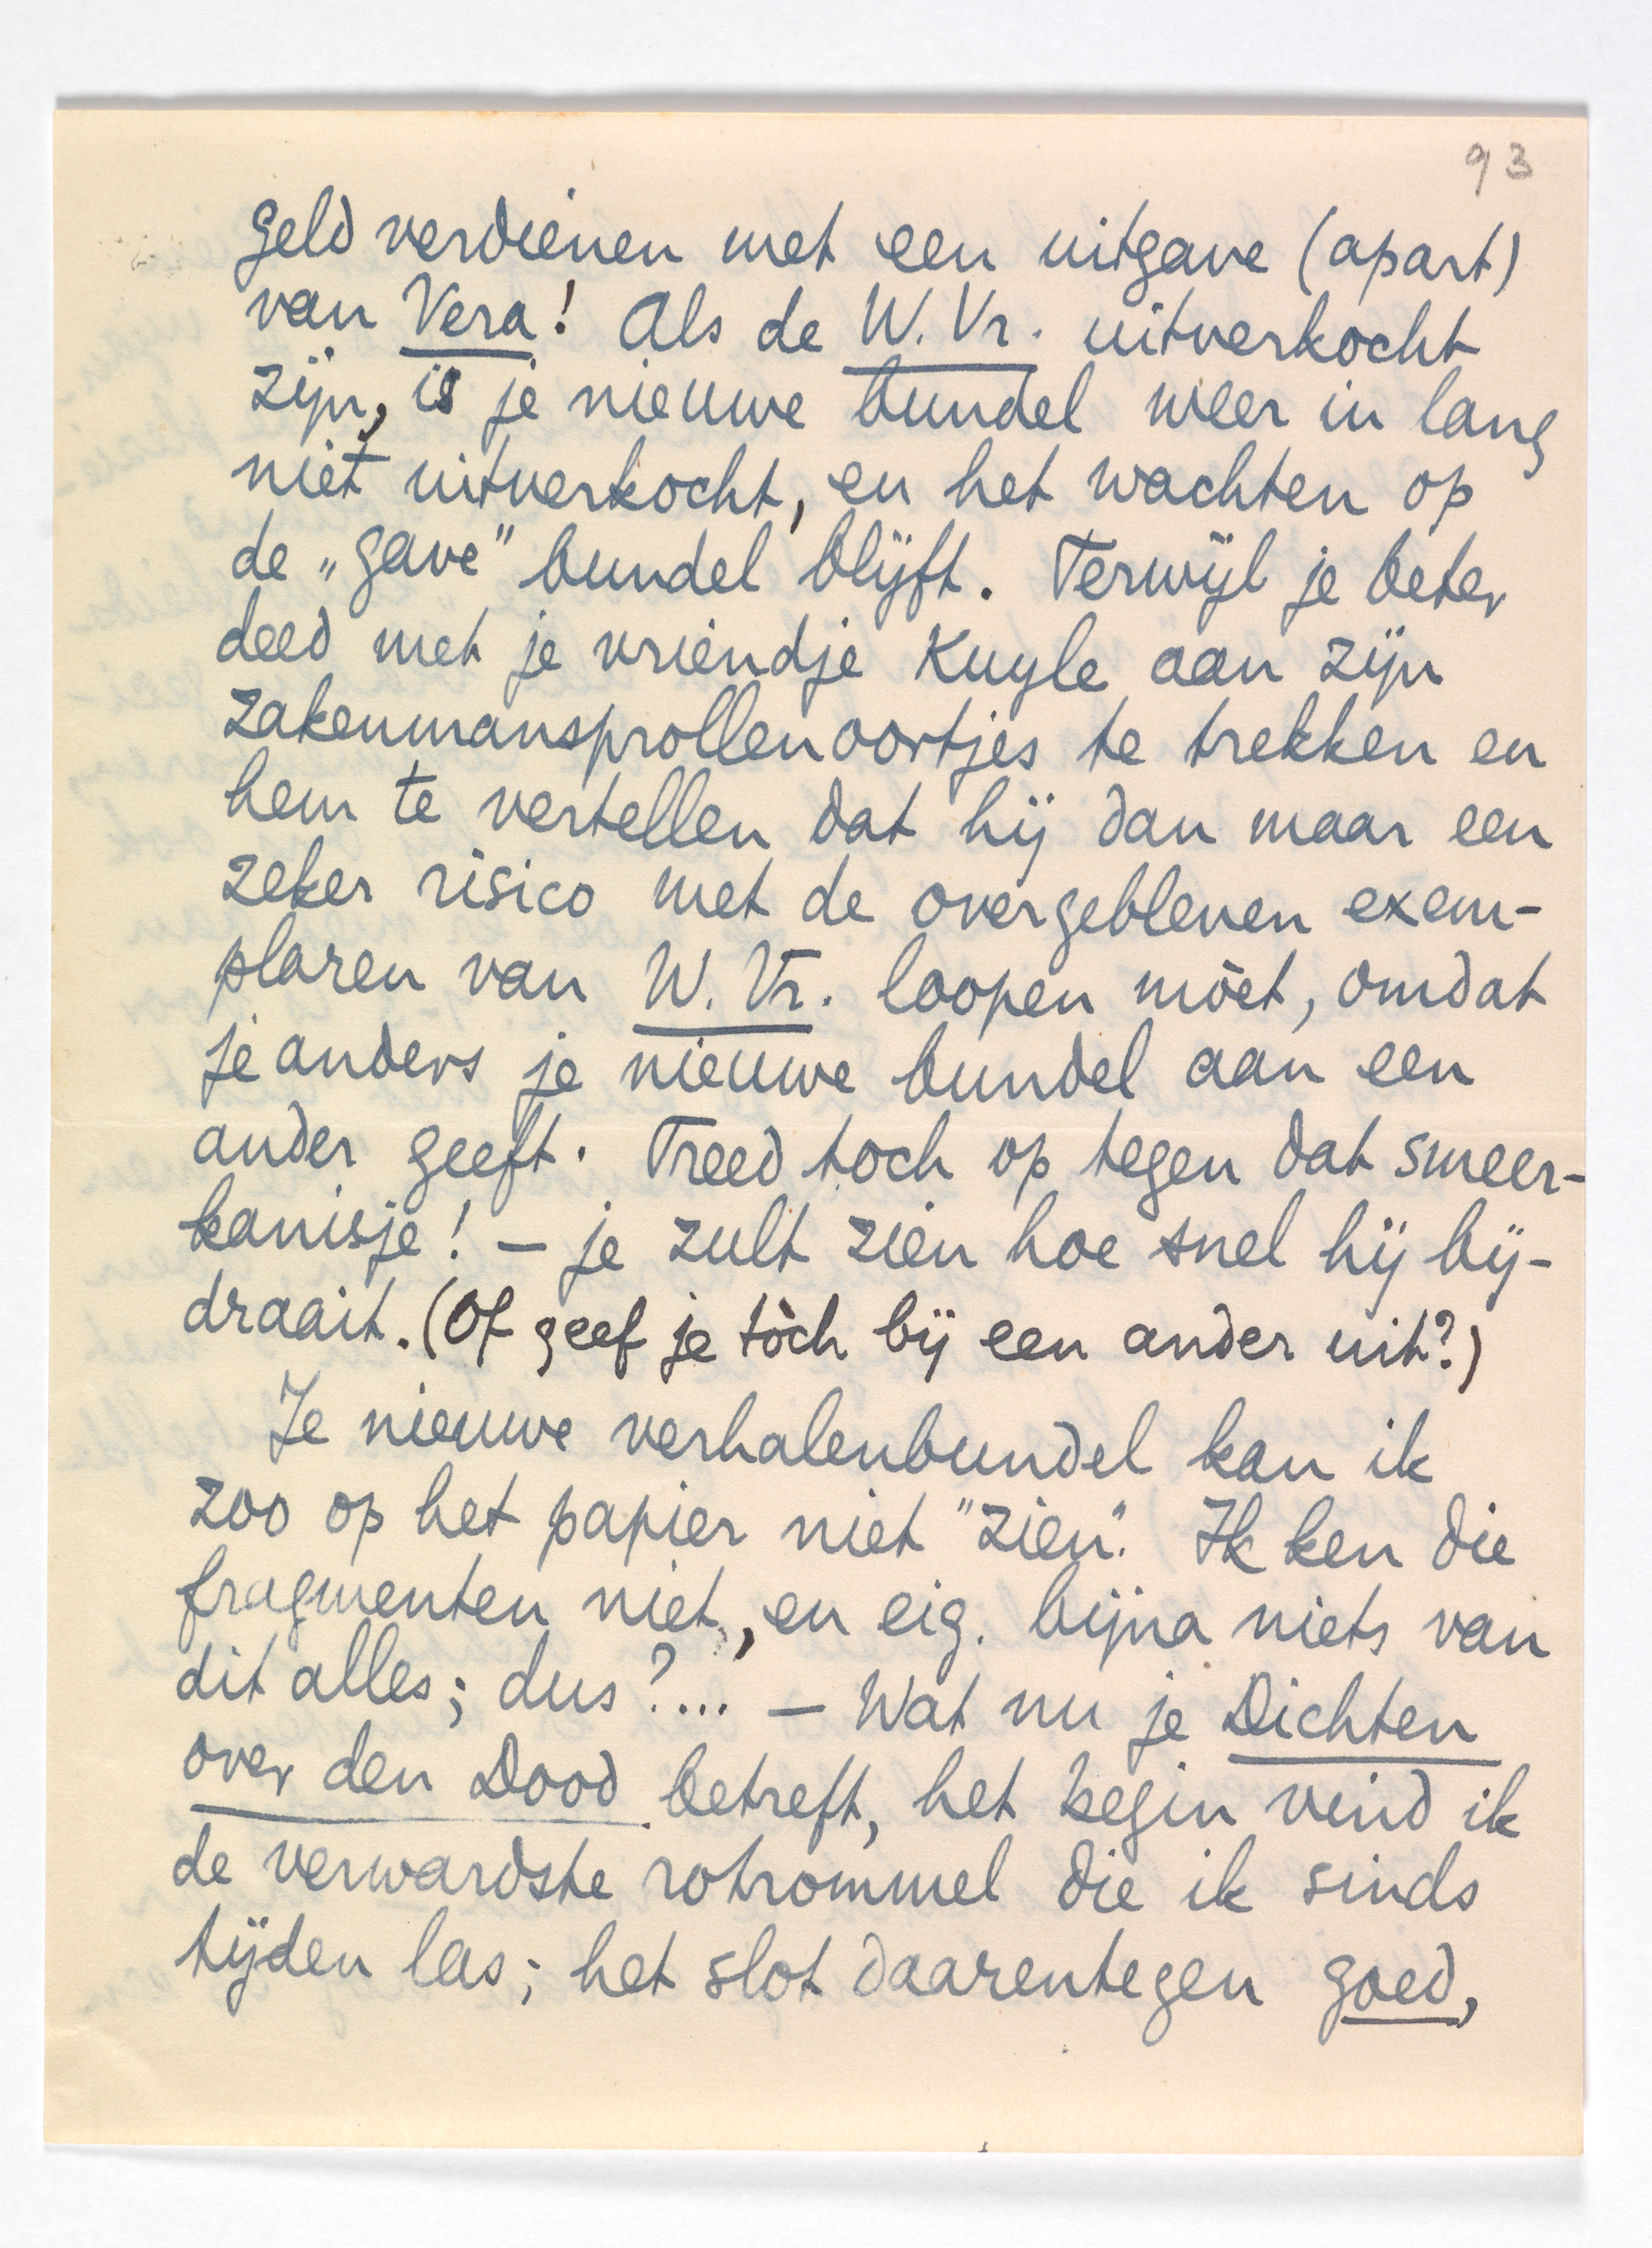 93
geld verdienen met een uitgave (apart)
van Vera! Als de W. Vr. uitverkocht
zijn, is je nieuwe bundel weer in lang
niet uitverkocht, en het wachten op
de „gave” bundel blijft. Terwijl je beter
deed met je vriendje Kuyle aan zijn
zakenmansprollenoortjes te trekken en
hem te vertellen dat hij dan maar een
zeker risico met de overgebleven exem-
plaren van W. Vr. loopen mòet, omdat
je anders je nieuwe bundel aan een
ander geeft. Treed toch op tegen dat smeer-
kanisje! — je zult zien hoe snel hij bij-
draait. (Of geef je tòch bij een ander uit?)
Je nieuwe verhalenbundel kan ik
zoo op het papier niet "zien". Ik ken die
fragmenten niet, en eig. bijna niets van
dit alles; dus?... — Wat nu je Dichten
over den Dood betreft, het begin vind ik
de verwardste rotrommel die ik sinds
tijden las; het slot daarentegen goed,